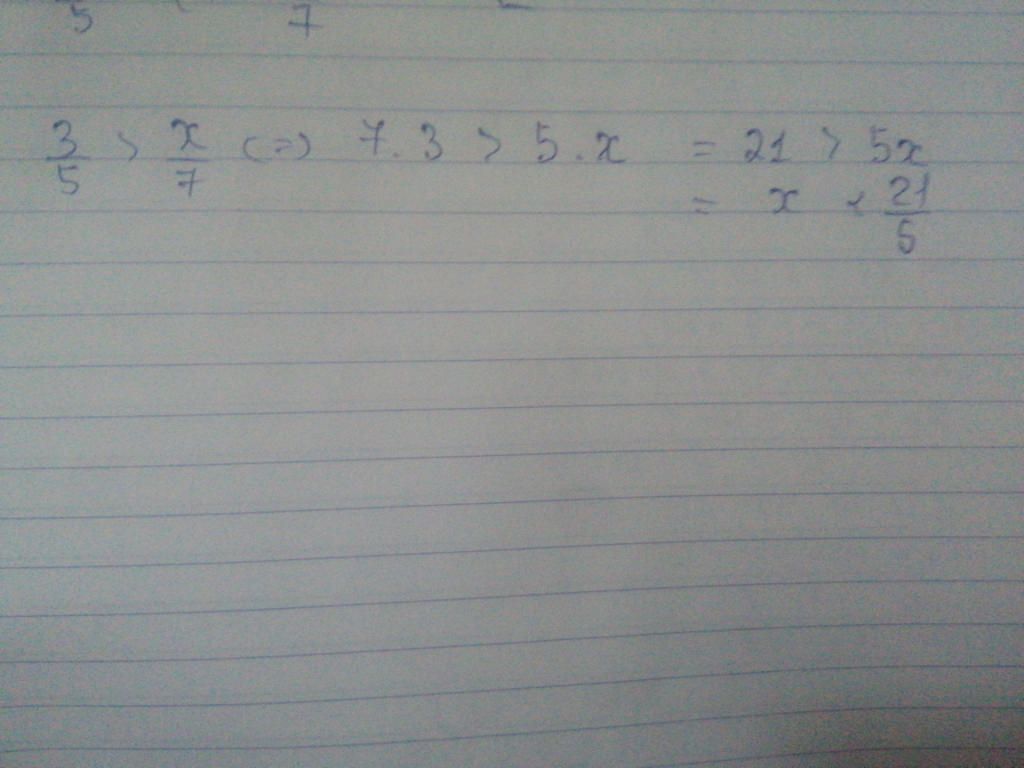 5 7
3/5 > x/7 (=) 7.3 > 5.x = 21 > 5x
= x < 21/5